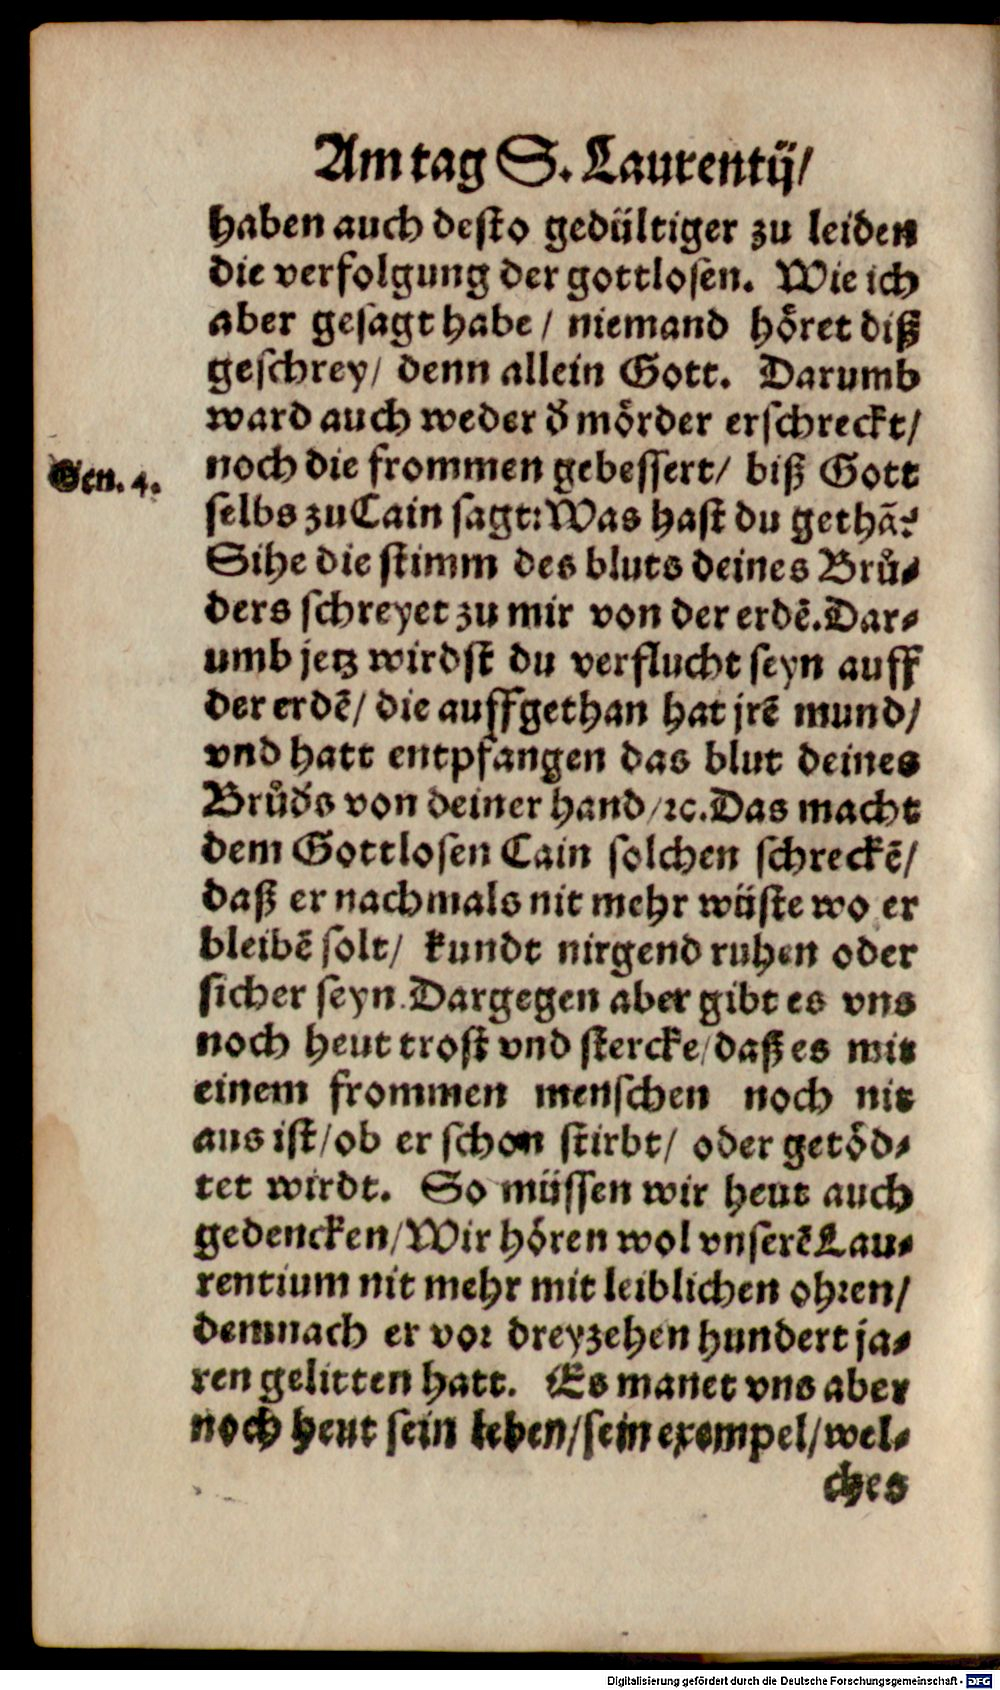 Am tag S. Laurentij/
haben auch desto gedültiger zu leiden
die verfolgung der gottlosen. Wie ich
aber gesagt habe / niemand höret diß
geschrey/ denn allein Gott. Darumb
ward auch weder d̃ mörder erschreckt/
Gen. 4.
noch die frommen gebessert/ biß Gott
selbs zu Cain sagt: Was hast du gethã?
Sihe die stimm des bluts deines Brů-
ders schreyet zu mir von der erdẽ. Dar-
umb jetz wirdst du verflucht seyn auff
der erdẽ/ die auffgethan hat jrẽ mund/
vnd hatt entpfangen das blut deines
Brůd̃s von deiner hand/ꝛc. Das macht
dem Gottlosen Cain solchen schreckẽ/
daß er nachmals nit mehr wüste wo er
bleibẽ solt/ kundt nirgend ruhen oder
sicher seyn. Dargegen aber gibt es vns
noch heut trost vnd stercke/daß es mit
einem frommen menschen noch nit
aus ist/ob er schon stirbt/ oder getöd-
tet wirdt. So müssen wir heut auch
gedencken/Wir hören wol vnserẽ Lau-
rentium nit mehr mit leiblichen ohren/
demnach er vor dreyzehen hundert ja-
ren gelitten hatt. Es manet vns aber
noch heut sein leben/sein exempel/wel-
ches
Digitalisierung gefördert durch die Deutsche Forschungsgemeinschaft - DFG